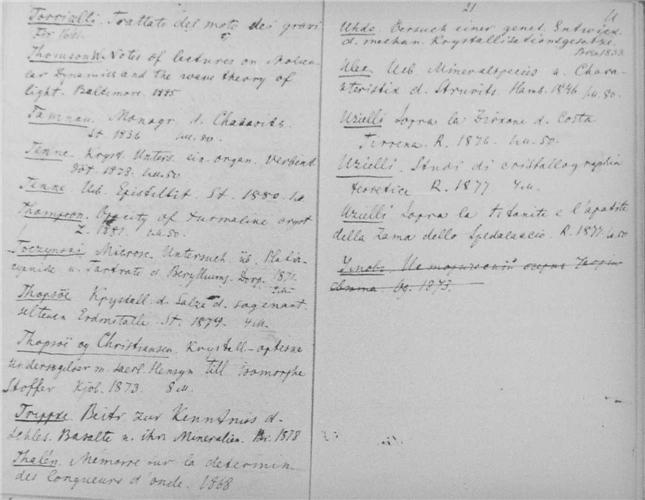 Torricelli. Trattato del moto dei gravi
Thomson W. Notes of lectures on molecu-
lar dynamics and the wave theory of
light. Baltimore. 1885
Tamnau. Monogr. d. Chabasits.
St. 1836
Tenne. Kryst. Unters. ein. organ. Verbind.
Göt. 1878.
Tenne Ueb. Epistilbit. St. 1880.
Thompson. of turmaline cryst
1881.
Toczynski Microsc. Untersuch üb. Platin-
cyanide u. Tartrate d. Berylliums. Dorp. 1871.
Thopsöe Krystall. d. Salze d. sogenant.
seltenen Erdmetalle. St. 1874.
Thopsöe og Christiansen. Krystall-optiske
undersögelser m. særl. Hensyn till isomorphe
Stoffer Kjöb. 1873. 8
Trippke. Beitr zur Kenntniss d.
schles. Basalte u. ihre Mineralien. Br. 1878
Thalén. Mémoire sur la détermin
des longueurs d'onde. 1868
21
U
Uhde. Versuch einer genet. Entwick
d. mechan. Krystallisationsgesetze.
Bre. 1833
Ulex Ueb Mineralspecies u. Chara-
kteristik d. Struvits. Hamb. 1846
Uzielli Sopra lo Zircone d. Costa
Tirrena. R. 1876.
Uzielli. Studi di cristallographia
teoretica R. 1877
Uzielli Sopra la titanite e l'apatite
della Zama dello Spedalaccio. R. 1877.
1873.